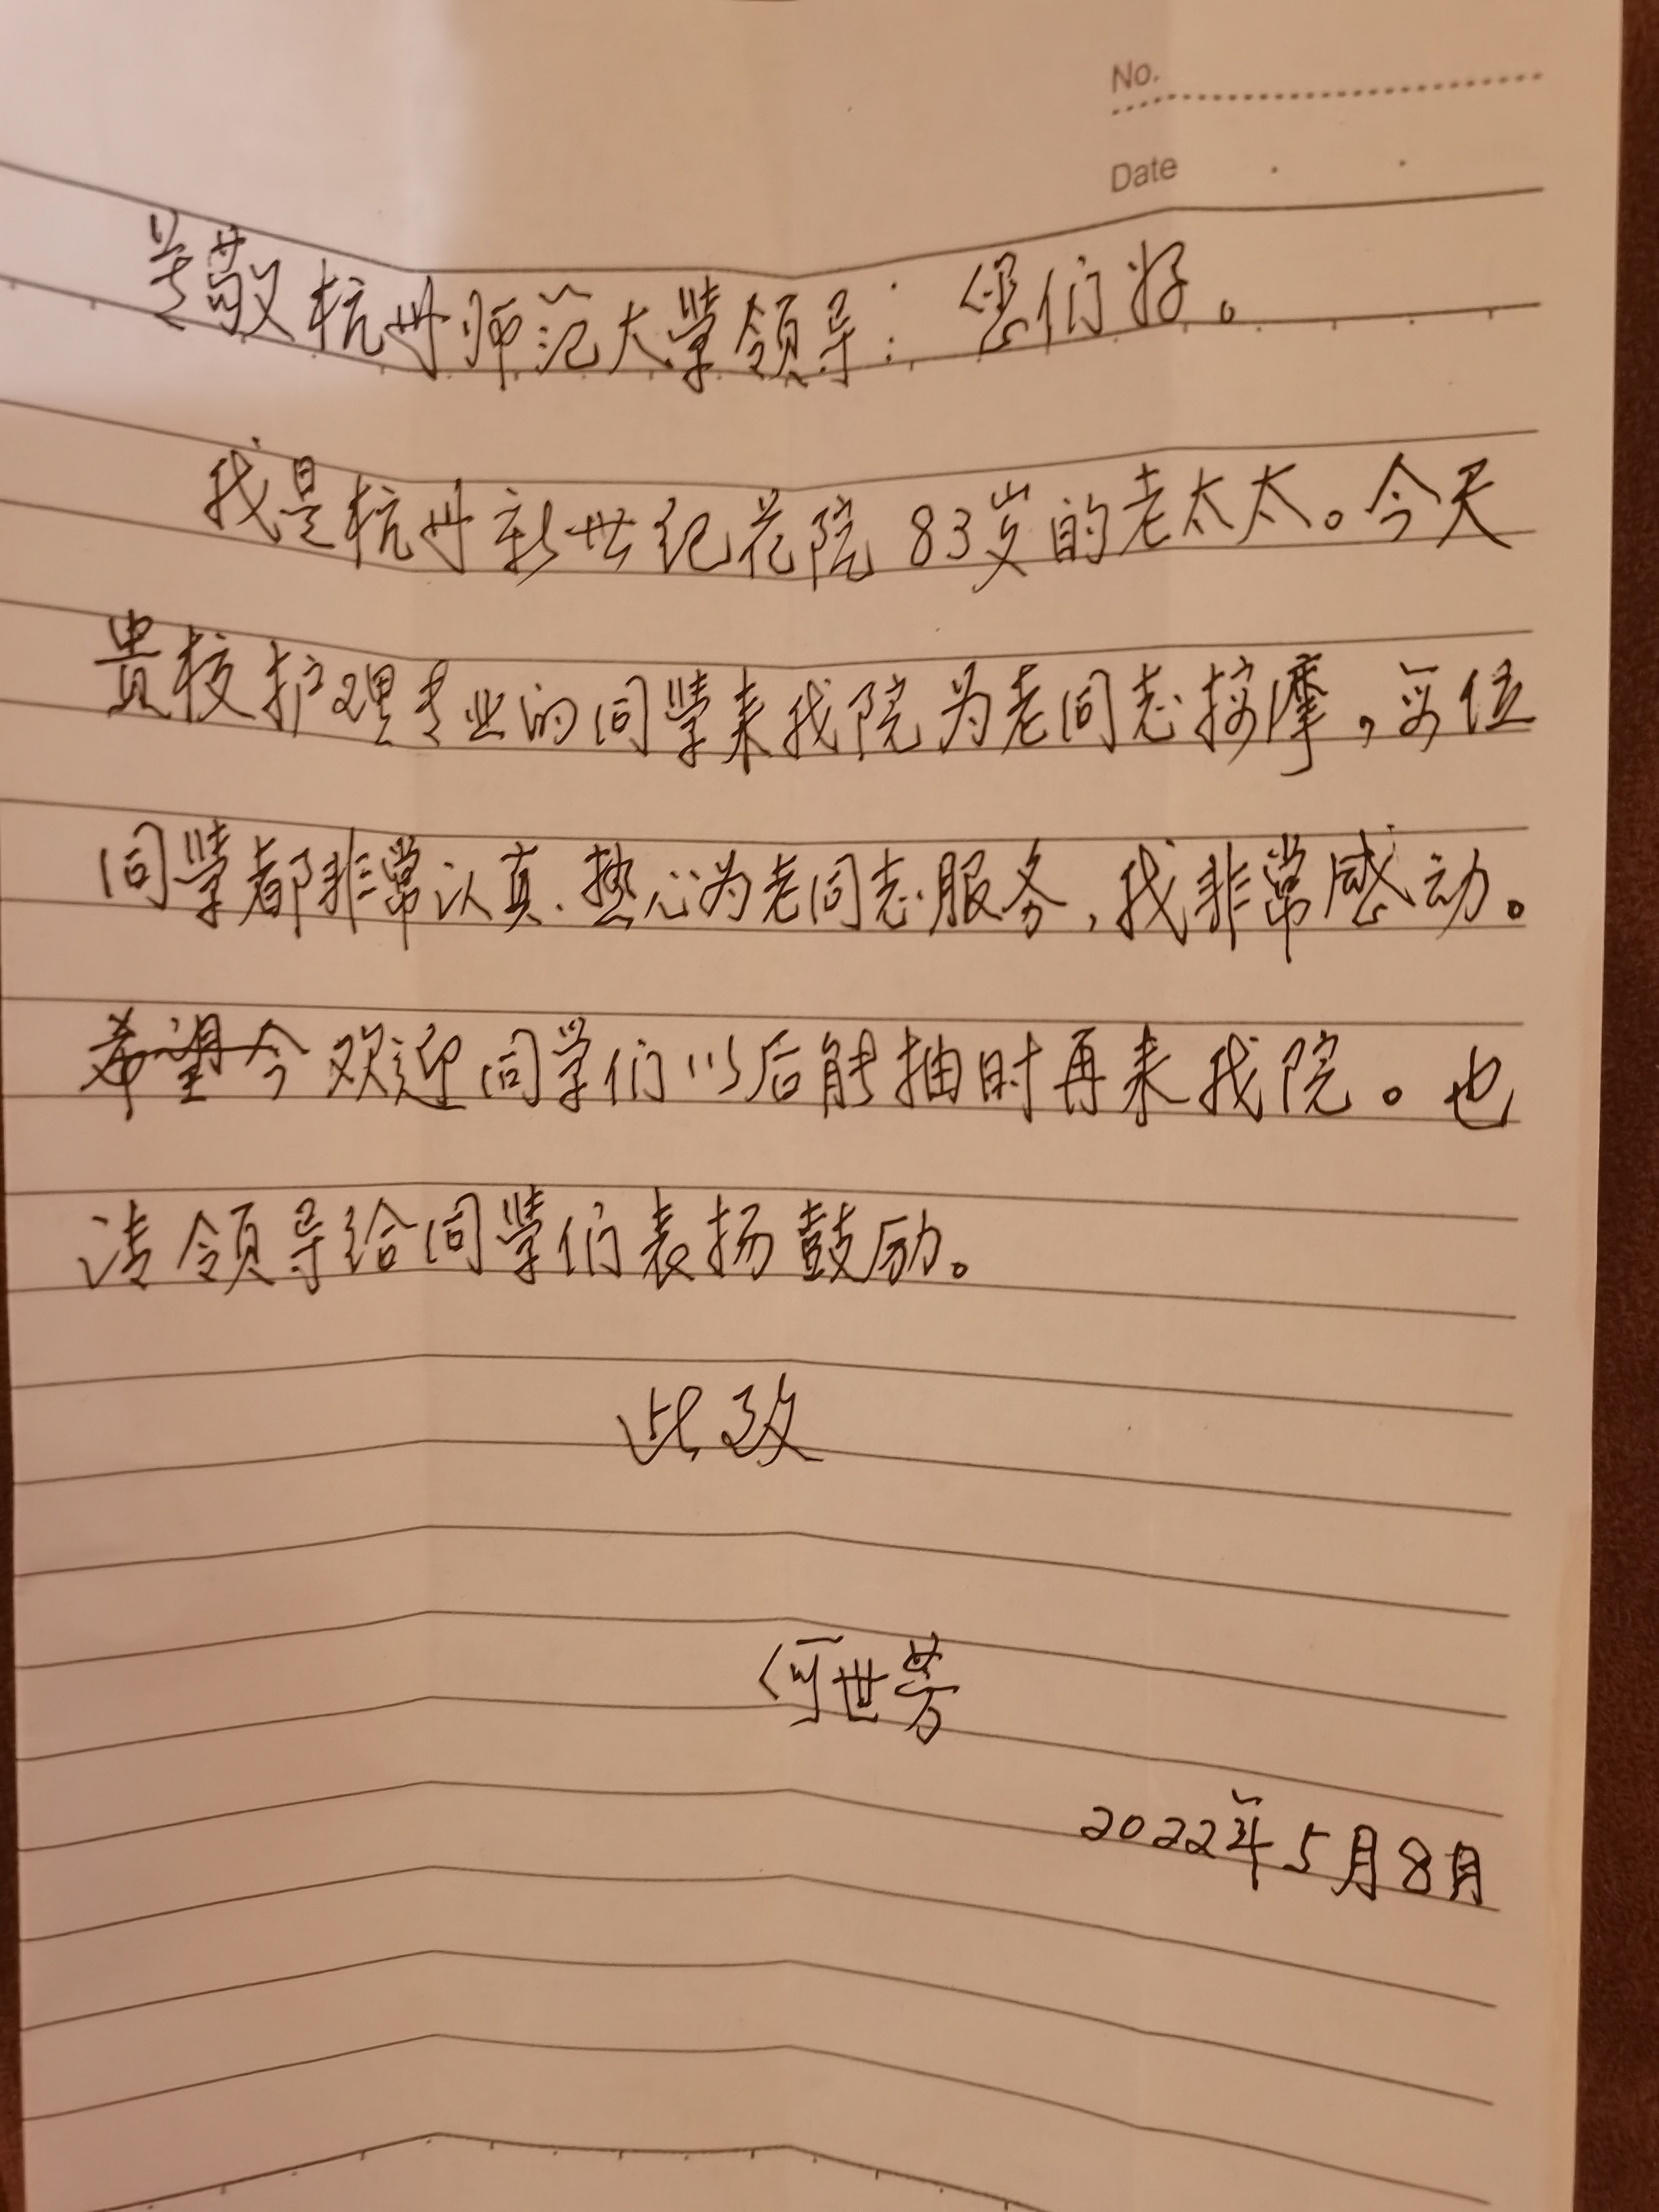 No.
Date
尊敬杭州师范大学领导：您们好。
我是杭州新世纪花院83岁的老太太。今天
贵校护理专业的同學来我院为老同志按摩，每位
同學都非常认真、热心为老同志服务，我非常感动。
希望今欢迎同学们以后能抽时再来我院。也
请领导给同學们表扬鼓励。
此致
何世芳
2022年5月8月